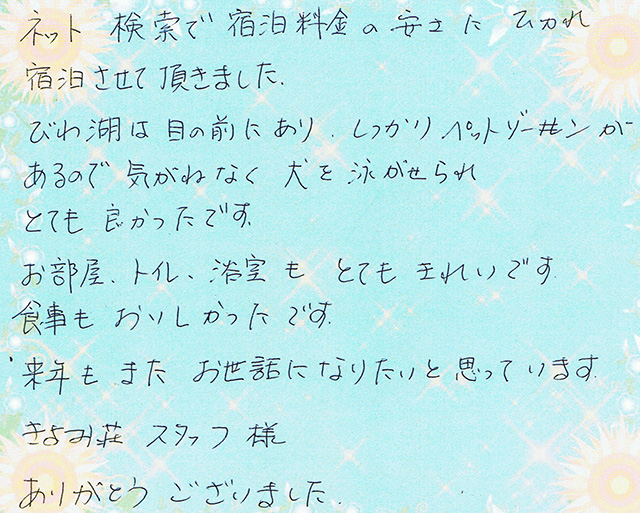 ネット 検索で 宿泊料金の 安さに ひかれ
宿泊させて頂きました.
びわ湖は目の前にあり. しっかり ペットゾーンが
あるので 気がねなく 犬を 泳がせられ
とても 良かったです.
お部屋、トイレ、浴室も とても きれいです.
食事も おいしかったです.
来年も また お世話になりたいと 思っています.
きよみ荘 スタッフ 様
ありがとう ございました.